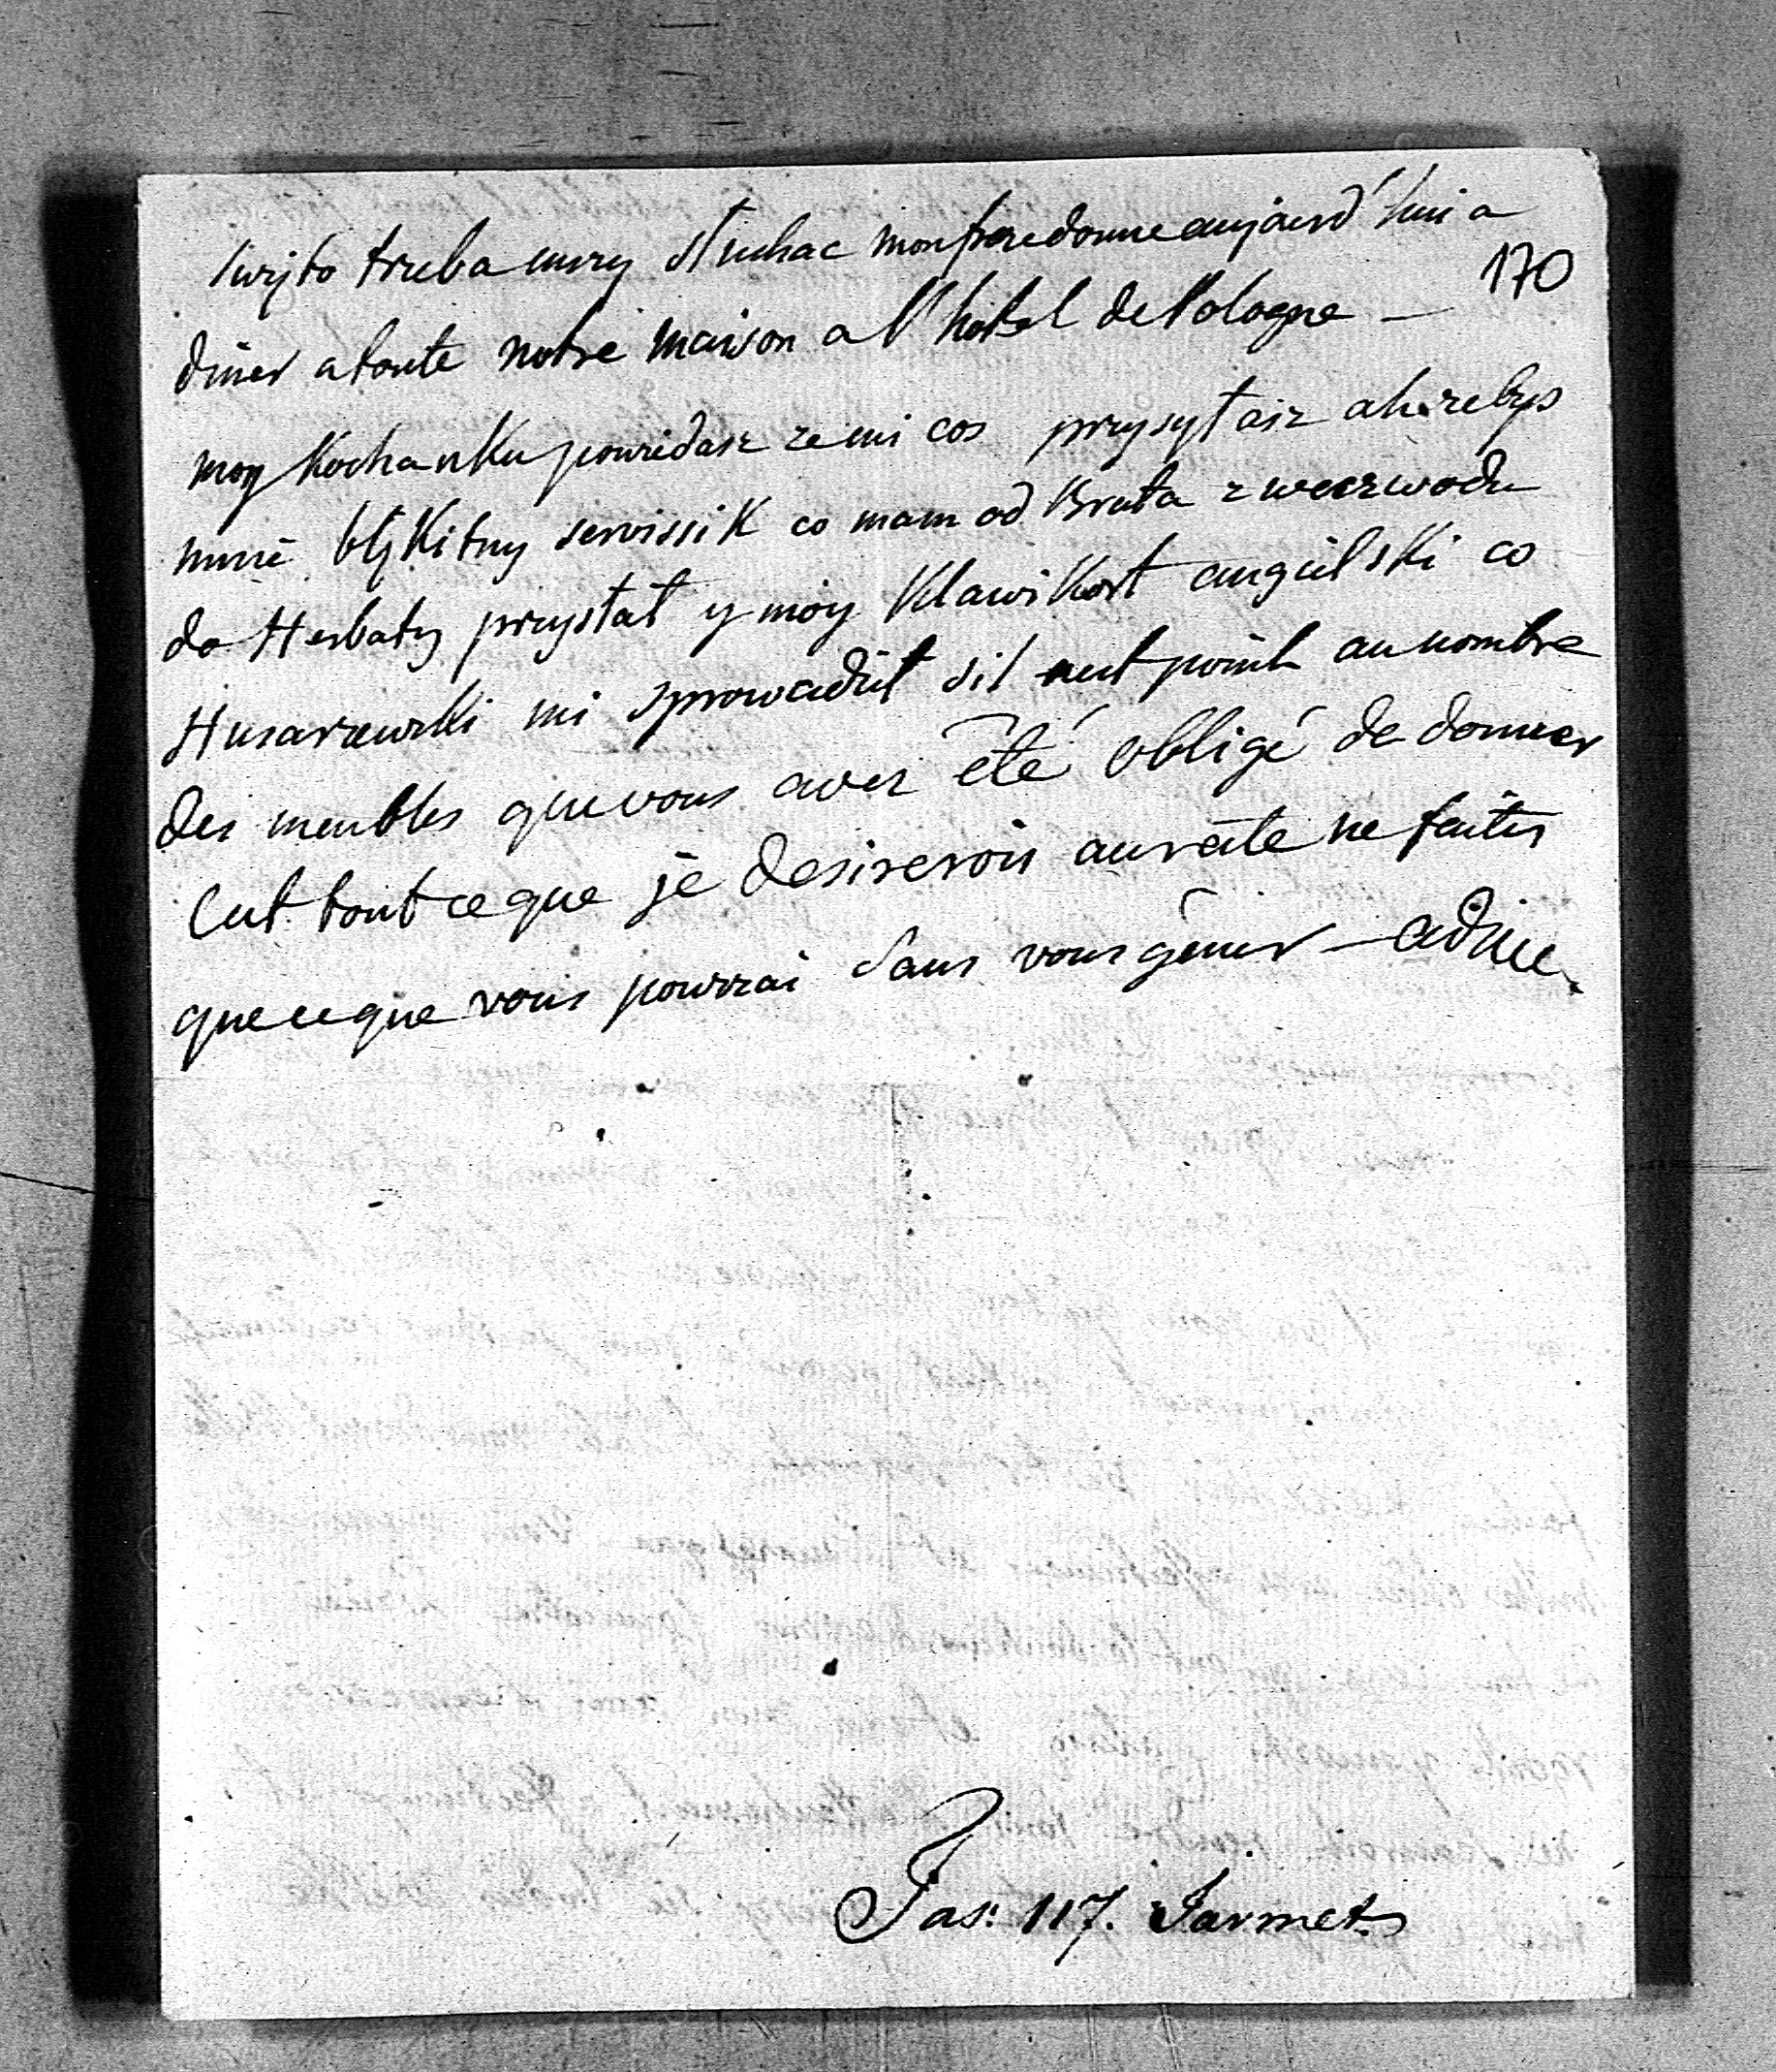 swięto trzeba mszy słuchac mon frere donne aujourd'hui a
170
diner a toute notre maison a l'hotel de Pologne —
moy Kochanku powiedasz ze mi cos przysyłasz ah zebys
mnie błękitny servissik co mam od Brata
do Herbaty przystał y moy Klawikort angielski co
Husarzewski mi sprowadził s'il nest point au nombre
des meubles que vous avez été obligé de donner
Cest tout ce que je desirerois au reste ne faites
que ce que vous pourrai sans vous gêner — adieu
Fas: 117. Jarmets